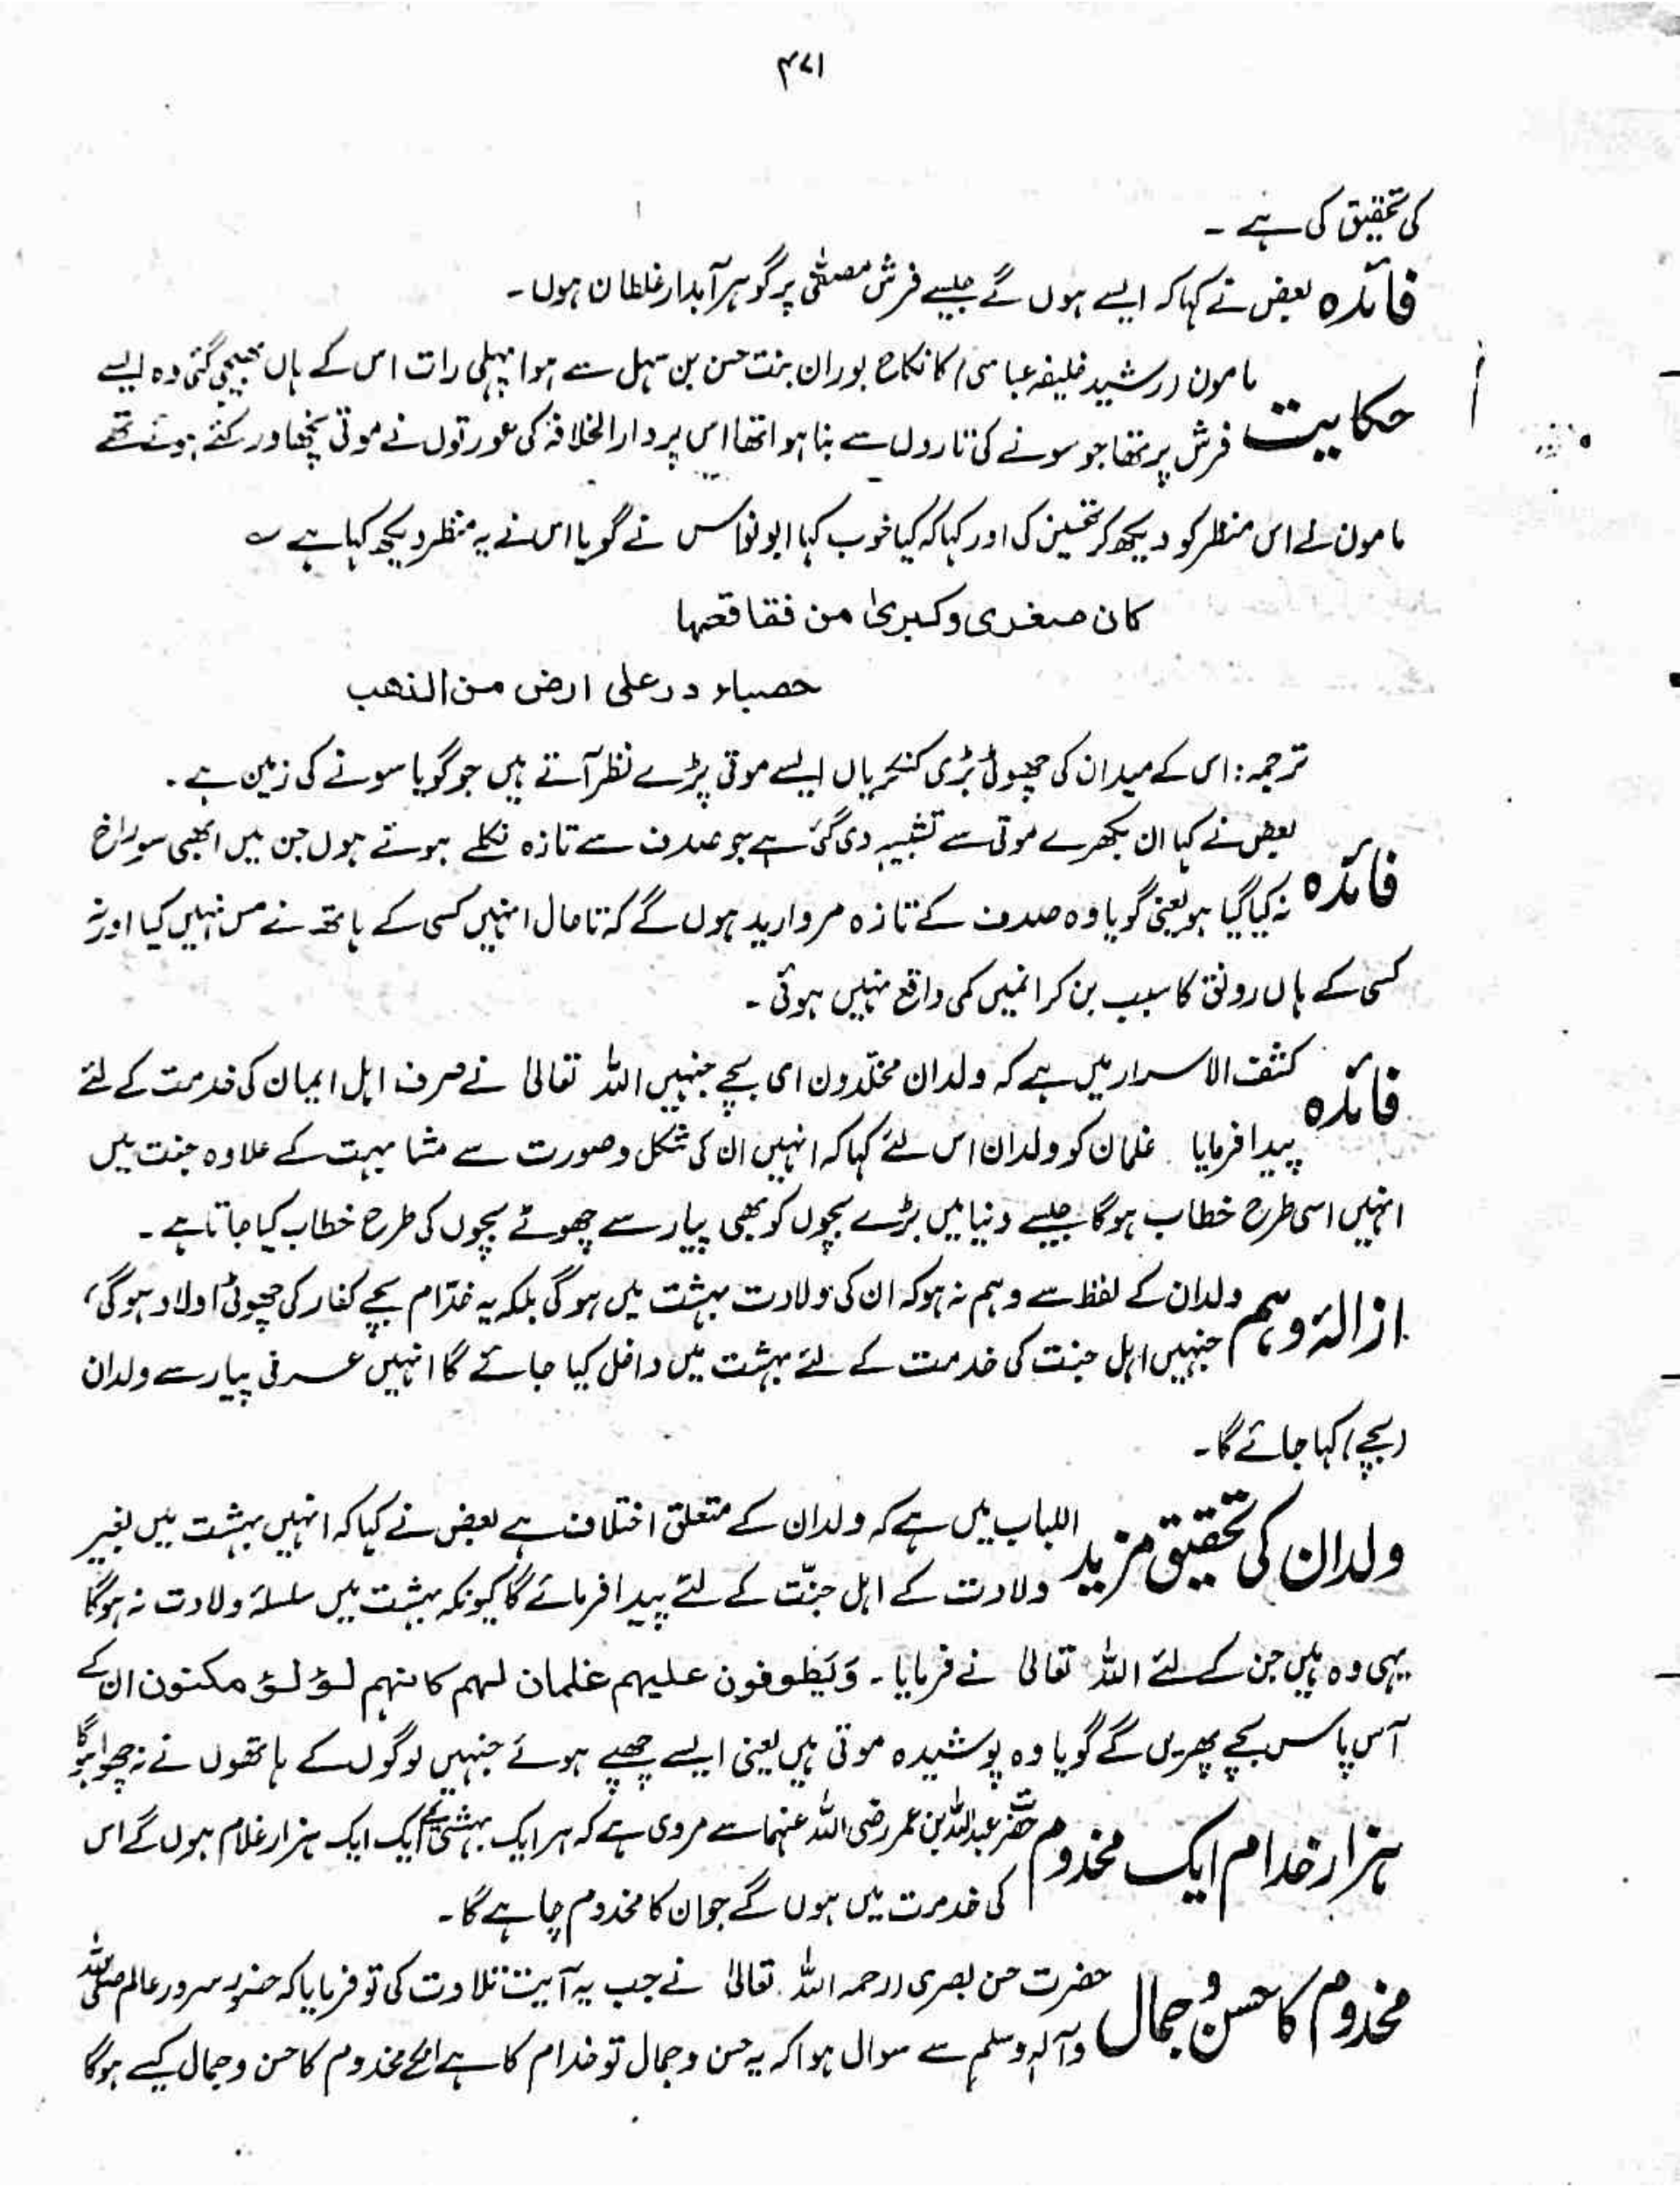 ۴۷۱
کی تحقیق کی ہے ۔
فائدہ بعض نے کہا کہ ایسے ہوں گے جیسے فرش مصفٰی پر گوہر آبدار غلطان ہوں۔
حکایت مامون (رشید خلیفہ عباسی) کا نکاح بوران بنت حسن بن سہل سے ہوا پہلی رات اس کے ہاں بھیجی گئی وہ ایسے
فرش پر تھا جو سونے کی تاروں سے بنا ہوا تھا اس پر دارالخلافہ کی عورتوں نے موتی نچھاور کئے ہوئے تھے
مامون نے اس منظر کو دیکھ کر تحسین کی اور کہا کہ کیا خوب کہا ابو نواس نے گویا اس نے یہ منظر دیکھ کہا ہے ؎
کان صغری وکبریٰ من فقاقعہا
حصباء در علی ارض من الذھب
ترجمہ: اس کے میدان کی چھوٹی بڑی کنکریاں ایسے موتی پڑے نظر آتے ہیں جو گویا سونے کی زمین ہے ۔
فائدہ بعض نے کہا ان بکھرے موتی سے تشبیہ دی گئی ہے جو صدف سے تازہ نکلے ہوتے ہوں جن میں ابھی سوراخ
نہ کیا گیا ہو یعنی گویا وہ صدف کے تازہ مروارید ہوں گے کہ تاحال انہیں کسی کے ہاتھ نے مس نہیں کیا اور نہ
کسی کے ہاں رونق کا سبب بن کر انمیں کمی واقع نہیں ہوئی ۔
فائدہ کشف الاسرار میں ہے کہ ولدان مخلّدون ای بچے جنہیں اللہ تعالیٰ نے صرف اہل ایمان کی خدمت کے لئے
پیدا فرمایا غلمان کو ولدان اس لئے کہا کہ انہیں ان کی شکل و صورت سے مشابہت کے علاوہ جنت میں
انہیں اسی طرح خطاب ہوگا جیسے دنیا میں بڑے بچوں کو بھی پیار سے چھوٹے بچوں کی طرح خطاب کیا جاتا ہے ۔
ازالۂ وہم ولدان کے لفظ سے وہم نہ ہو کہ ان کی ولادت بہشت میں ہوگی بلکہ یہ خدّام بچے کفار کی چھوٹی اولاد ہوگی،
جنہیں اہل جنت کی خدمت کے لئے بہشت میں داخل کیا جائے گا انہیں عرفی پیار سے ولدان
(بچے) کہا جائے گا ۔
ولدان کی تحقیق مزید اللباب میں ہے کہ ولدان کے متعلق اختلاف ہے بعض نے کہا کہ انہیں بہشت میں بغیر
ولادت کے اہل جنّت کے لئے پیدا فرمائے گا کیونکہ بہشت میں سلسلۂ ولادت نہ ہوگا
یہی وہ ہیں جن کے لئے اللہ تعالیٰ نے فرمایا ۔ وَیَطوفون علیہم غلمان لہم کانہم لؤلؤ مکنون ان کے
آس پاس بچے پھریں گے گویا وہ پوشیدہ موتی ہیں یعنی ایسے چھپے ہوئے جنہیں لوگوں کے ہاتھوں نے نہ چھوا ہوگا
ہزار خدام ایک مخدوم حضرت عبداللہ بن عمر رضی اللہ عنہما سے مروی ہے کہ ہر ایک بہشتی کے ایک ایک ہزار غلام ہوں گے اس
کی خدمت میں ہوں گے جو ان کا مخدوم چاہے گا ۔
مخدوم کا حسن و جمال حضرت حسن بصری (رحمہ اللہ تعالیٰ نے جب یہ آیت تلاوت کی تو فرمایا کہ حضور سرور عالم صلی اللہ
وآلہٖ وسلم سے سوال ہوا کہ یہ حسن وجمال تو خدام کا ہے انکے مخدوم کا حسن وجمال کیسے ہوگا